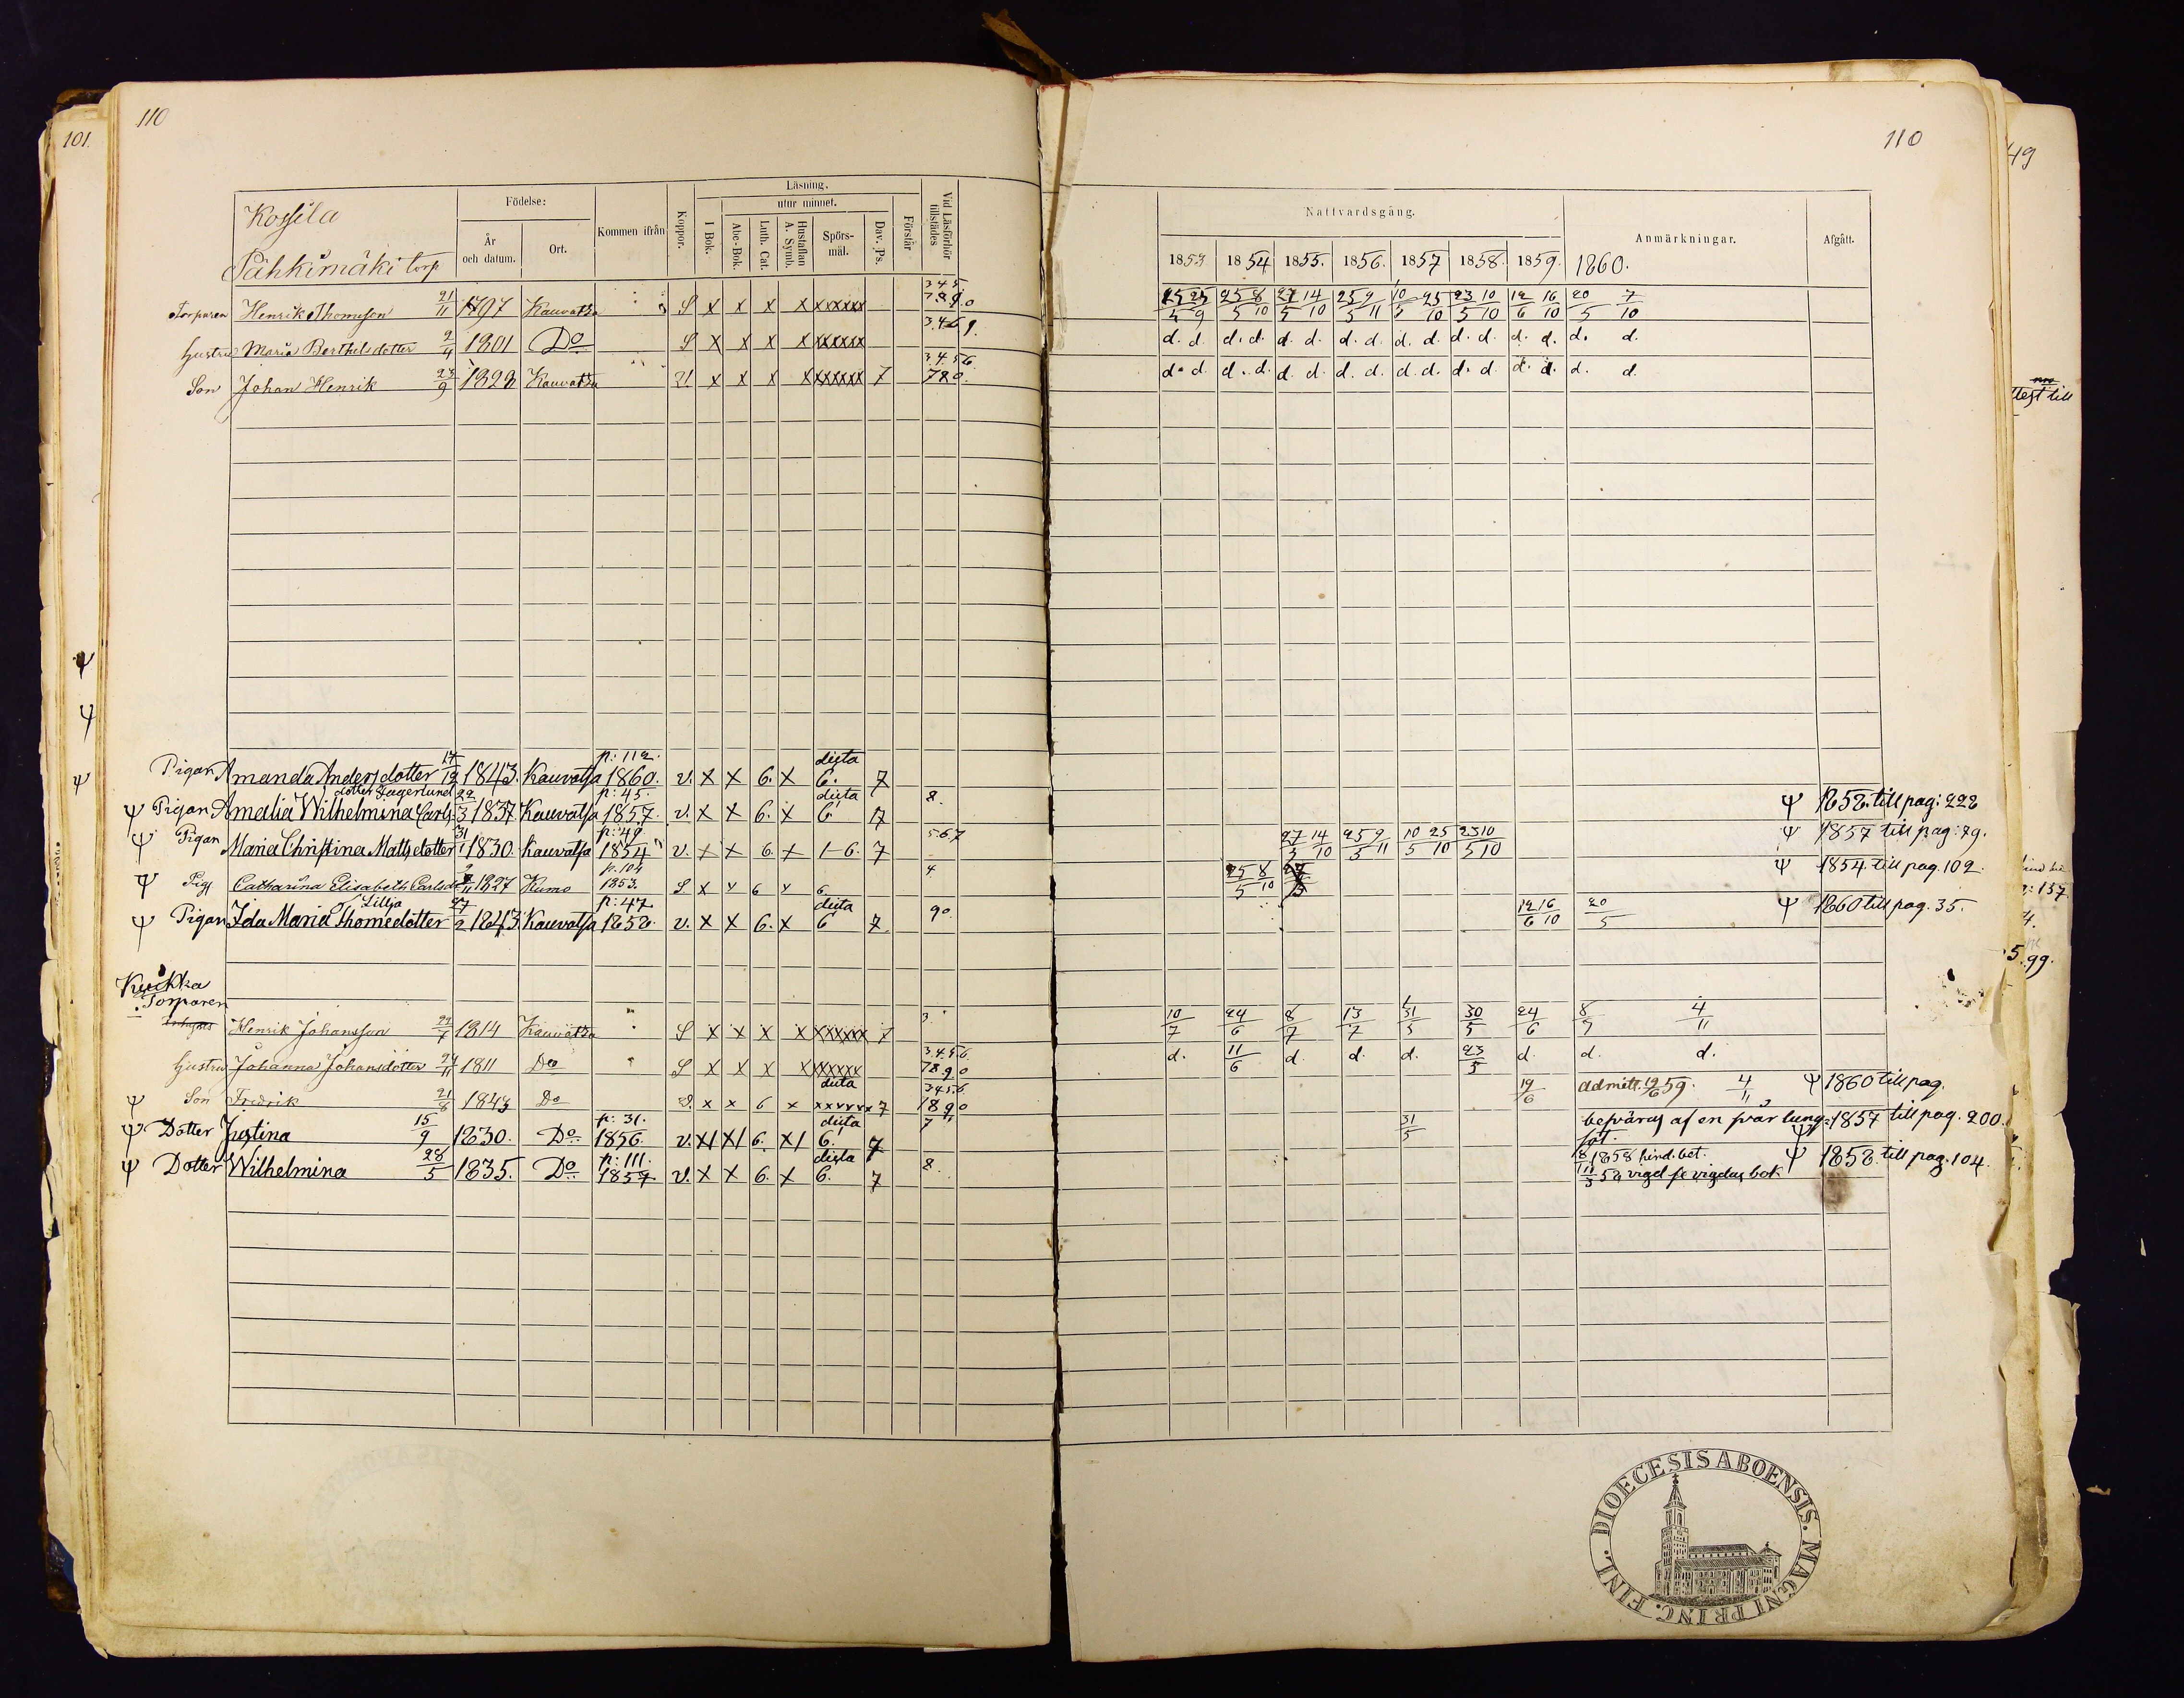 110
101.
Kossila
Pähkimäki torp
Födelse:
År och datum.
Ort.
Kommen ifrån
Koppor.
Läsning.
I Bok.
utur minnet.
Abc-Bok.
Luth. Cat.
Hustaflan A. Symb.
Spörs-mål.
Dav. Ps.
Förstår
Vid Läsförhör tillstädes
Torparen Henrik Thomasson 21/11 1797 Kauvatsa S x x x x xxxxxx 3.4.5. 7.8.9.0
Hustru Maria Berthelsdotter 2/4 1801 Do S x x x x xxxxxx 3.4.6 9.
Son Johan Henrik 23/9 1828 Kauvatsa x x x x xxxxxx 7 3.4.5.6. 7.8.0.
Pigan Amanda Andersdotter 17/12 1843. Kauvatsa p: 112. 1860. v. x x 6. x dista 6. 7
Ψ Pigan Amalia Wilhelmina Carls-dotter Lagerlund 22/3 1837 Kauvatsa p: 45. 1857. v. x x 6. x dista 6 7 8.
Ψ Pigan Maria Christina Mattsdotter 31/1 1830. Kauvatsa p: 49. 1854 v. x x 6. x 1-6. 7 5.6.7
Ψ Pig Catharina Elisabeth Carlsd 1827 Kumo p. 104 1853. S x x 6 x 6 4
Ψ Pigan Ida Maria Thomedotter Lilja 27/2 1843 Kauvatsa p: 47 1858. v. x x 6. x dista 6 7 90.
Kuikka
Torparen
Henrik Johansson 22/7 1814 Kauvatsa S x x x x xxxxxx 7 3.
Hustru Johanna Johansdotter 24/11 1811 Do S x x x x xxxxxx 3.4.5.6. 7.8.9.0
Ψ Son Fredrik 21/8 1843 Do v. x x 6 x dista xxxxxx 7 3.4.5.6. 7 8 9 0
Ψ Dotter Justina 15/9 1830. Do p: 31. 1856. v. x x 6. x dista 6. 7 7
Ψ Dotter Wilhelmina 28/5 1835. Do p: 111. 1857 v. x x 6. x dista 6. 7 8.
110
49
Nattvardsgång.
1853 1854 1855. 1856. 1857 1858. 1859. 1860.
Anmärkningar.
Afgått.
25/5 25/9 25/5 8/10 27/5 14/10 25/5 9/11 10/5 25/10 23/5 10/10 12/6 16/10 20/5 7/10
d. d. d. d. d. d. d. d. d. d. d. d. d. d. d. d.
d. d. d. d. d. d. d. d. d. d. d. d. d. d. d. d.
Ψ 1858. till pag: 222
27/5 14/10 25/5 9/11 10/5 25/10 23/5 10/10 Ψ 1857 till pag: 79.
25/5 8/10 Ψ 1854 till pag. 102.
12/6 16/10 20/5 Ψ 1860 till pag. 35.
10/7 24/6 8/7 13/7 31/5 30/5 24/6 8/7 4/11
d. 11/6 d. d. d. 23/5 d. d. d.
19/6 admitt. 19/6 59. 4/11 Ψ 1860 till pag.
31/5 besväras af en svår lung-sot. Ψ 1857 till pag. 200.
1858 hind. bet. Ψ 1858 till pag. 104.
vigd se vigdas bok
ttest till
: 137
5.99.
DIOECESIS ABOENSIS. MAGNI PRINC. FINL.